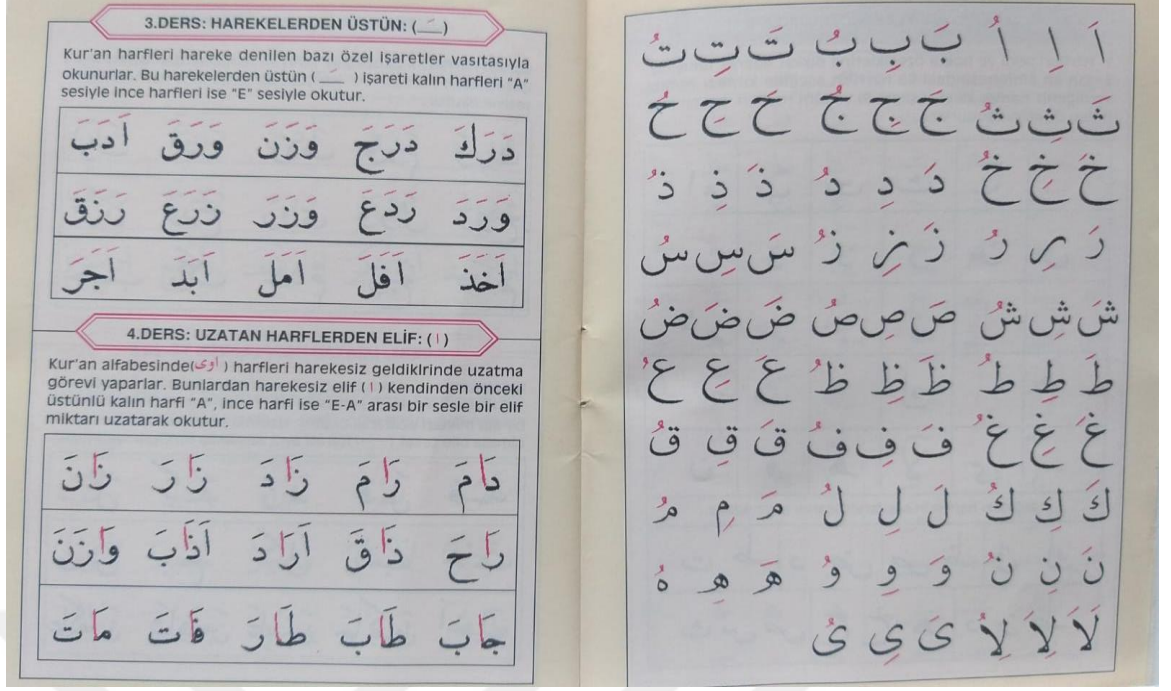 3.DERS: HAREKELERDEN ÜSTÜN: ( َ )
Kur'an harfleri hareke denilen bazı özel işaretler vasıtasıyla
okunurlar. Bu harekelerden üstün ( َ ) işareti kalın harfleri "A"
sesiyle ince harfleri ise "E" sesiyle okutur.
دَرَكَ دَرَجَ وَزَنَ وَرَقَ اَدَبَ
وَرَدَ رَدَعَ وَزَرَ زَرَعَ رَزَقَ
اَخَذَ اَفَلَ اَمَلَ اَبَدَ اَجَرَ
4.DERS: UZATAN HARFLERDEN ELİF: (ا)
Kur'an alfabesinde(اوى) harfleri harekesiz geldiklrinde uzatma
görevi yaparlar. Bunlardan harekesiz elif (ا) kendinden önceki
üstünlü kalın harfi "A", ince harfi ise "E-A" arası bir sesle bir elif
miktarı uzatarak okutur.
دَامَ رَامَ زَادَ زَارَ زَانَ
رَاحَ ذَاقَ اَرَادَ اَذَابَ وَازَنَ
جَابَ طَابَ طَارَ فَاتَ مَاتَ
اَ اِ اُ بَ بِ بُ تَ تِ تُ
ثَ ثِ ثُ جَ جِ جُ حَ حِ حُ
خَ خِ خُ دَ دِ دُ ذَ ذِ ذُ
رَ رِ رُ زَ زِ زُ سَ سِ سُ
شَ شِ شُ صَ صِ صُ ضَ ضِ ضُ
طَ طِ طُ ظَ ظِ ظُ عَ عِ عُ
غَ غِ غُ فَ فِ فُ قَ قِ قُ
كَ كِ كُ لَ لِ لُ مَ مِ مُ
نَ نِ نُ وَ وِ وُ هَ هِ هُ
لَا لِا لُا ىَ ىِ ىُ